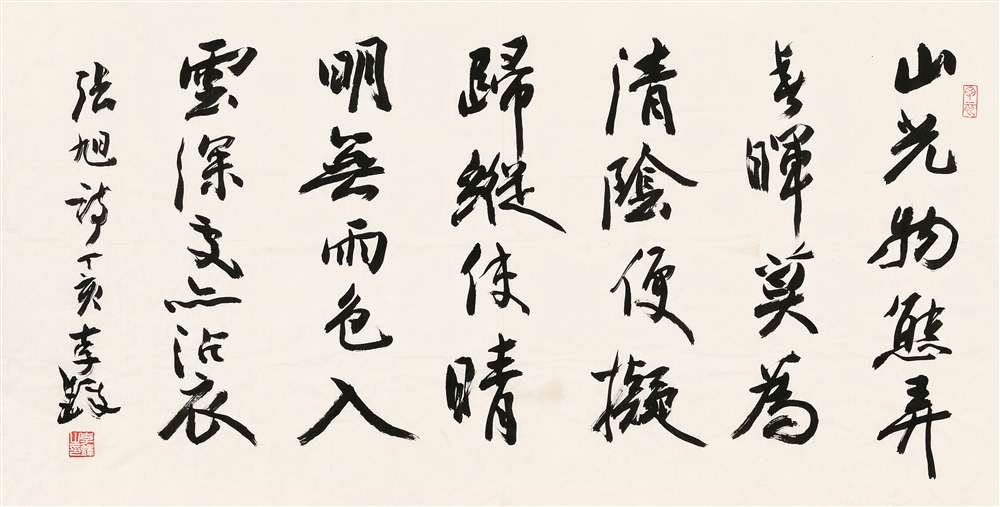 山光物態弄
春暉莫為
清陰便擬
歸縱使晴
明無雨色入
雲深處亦沾衣
張旭詩丁亥李鐸